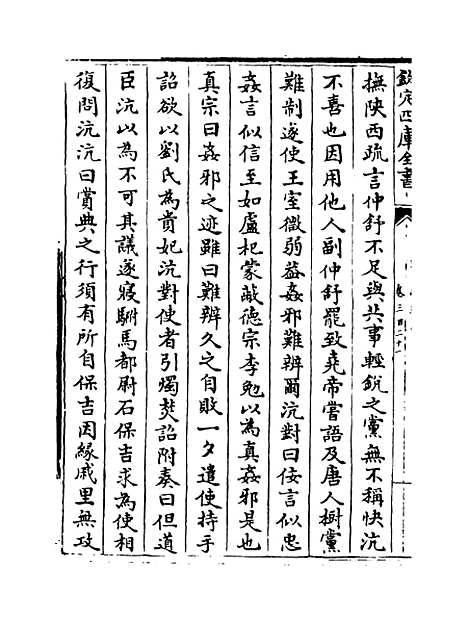 欽定四庫全書
卷三百二十
撫陝西疏言仲舒不足與共事輕銳之黨無不稱快沆
不喜也因用他人副仲舒罷致堯帝嘗語及唐人樹黨
難制遂使王室微弱葢姦邪難辨爾沆對曰佞言似忠
姦言似信至如盧杞蒙蔽德宗李勉以為真姦邪是也
真宗曰姦邪之迹雖曰難辨久之自敗一夕遣使持手
詔欲以劉氏為貴妃沆對使者引燭焚詔附奏曰但道
臣沆以為不可其議遂寢駙馬都尉石保吉求為使相
復問沆沆曰賞典之行須有所自保吉因緣戚里無攻